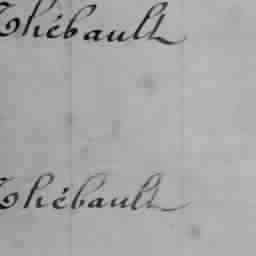 Thébault
Thébault